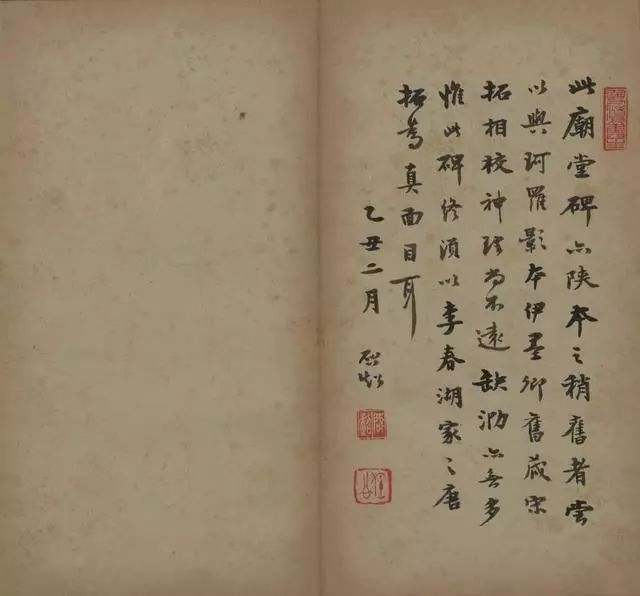 此廟堂碑亦陝本之稍舊者
以與珂羅影本伊墨卿舊藏宋
拓相校神理尚不遠缺泐亦無多
惟此碑終須以李春湖家之唐
拓為真面目耳
乙丑二月